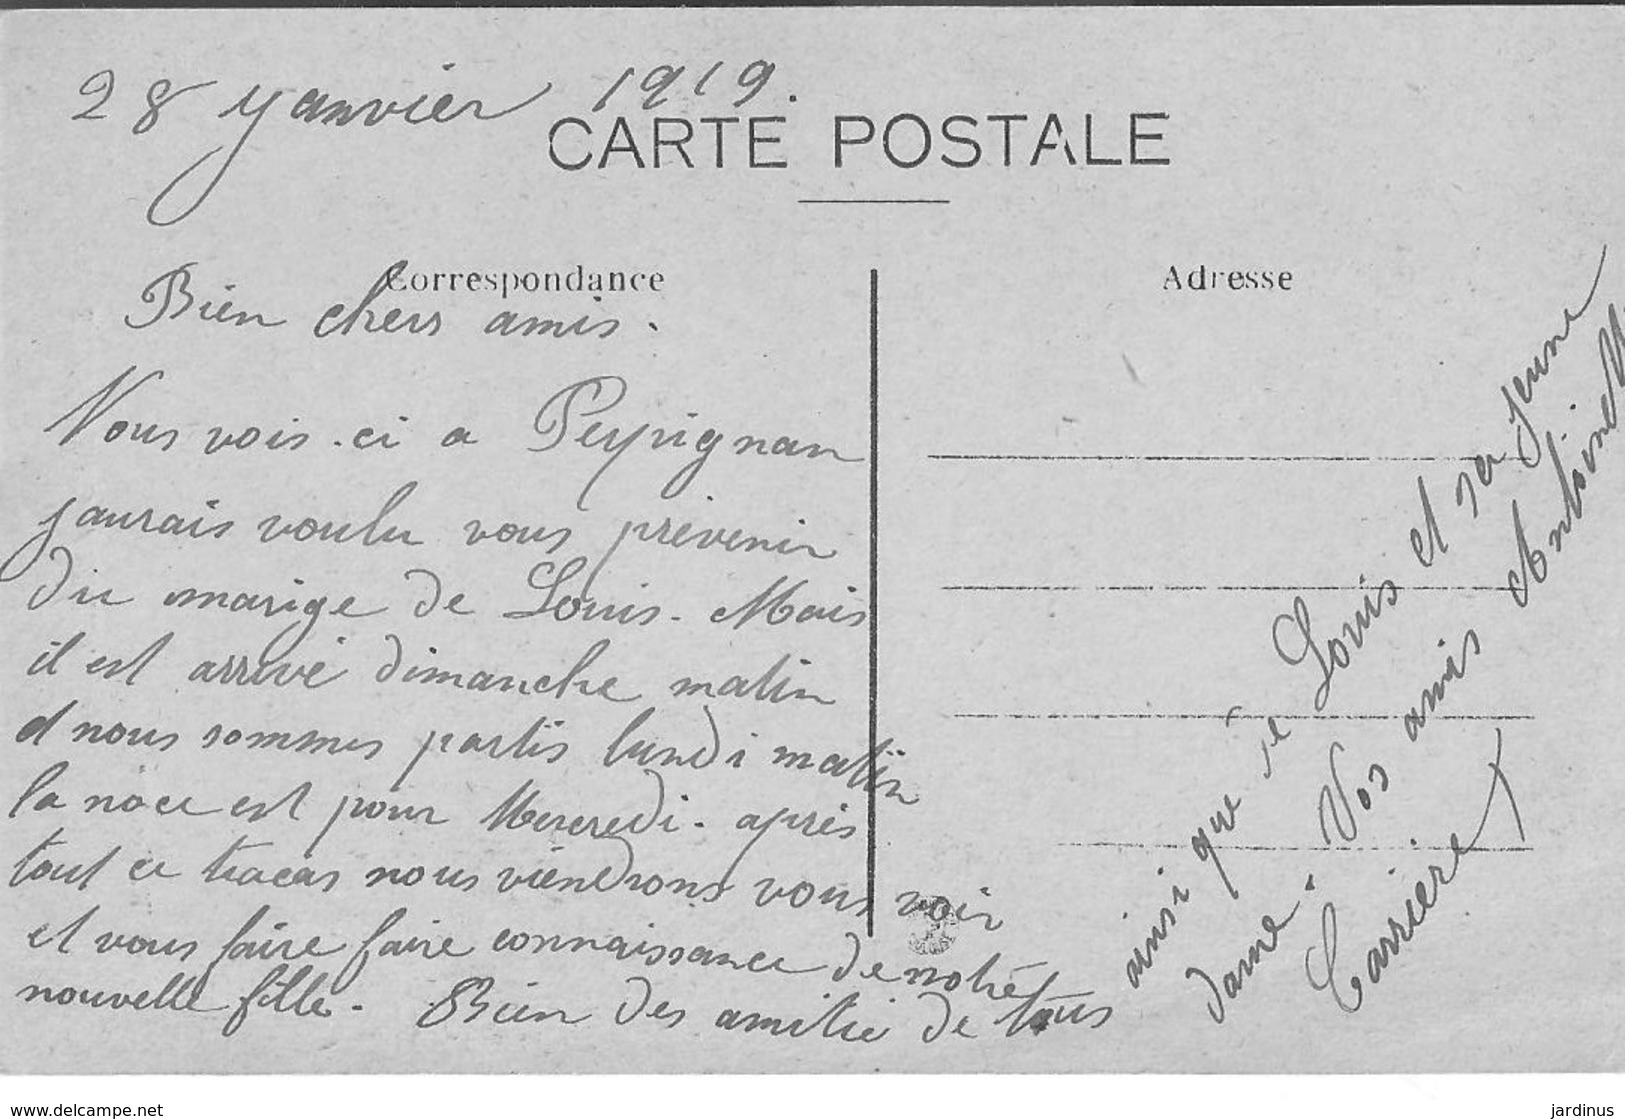 28 Janvier 1919.
CARTE POSTALE
Correspondance
Adresse
Bien chers amis.
Nous vois-ci a Perpignan
jaurais voulu vous prévenir
du marige de Louis. Mais
il est arrivé dimanche matin
et nous sommes partis lundi matin
la noce est pour Mercredi. après
tout ce tracas nous viendrons vous voir
et vous faire faire connaissance de notre
nouvelle fille. Bien des amitié de tous
ainsi que de Louis et sa jeune
dame. Vos amis Antoinette
Carrière
www.delcampe.net
jardinus